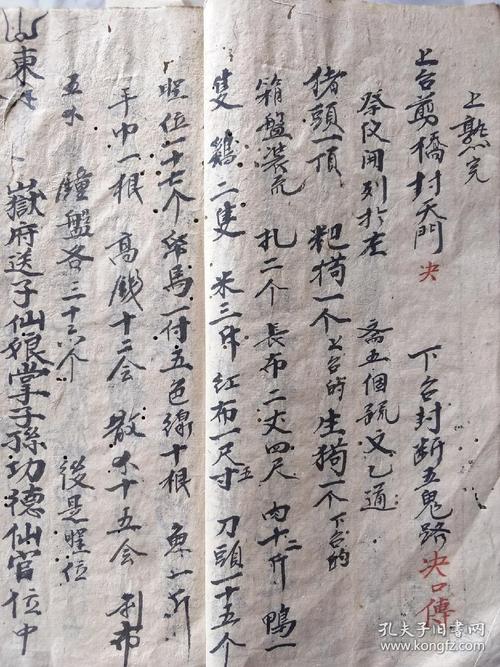 上熟完
上台剪橋封天門 决 下台封断五鬼路 决口傳
祭仪開列于左 斋五個 疏文乙通
猪頭一頂 粑 一个上台的 生 一个下台的
箱盤裝充 扎二个 長布二丈四尺 肉十二斤 鴨一
隻 鷄二隻 米三升 红布一尺五寸 刀頭一十五个
位一十七个 帋馬一付 五色線十根 魚一斤
手巾一根 高錢十二会 散 十五会 利市
五 盤各三十六个 後是 位
山東
嶽府送子仙娘掌子孫功德仙官位中
孔夫子旧书网